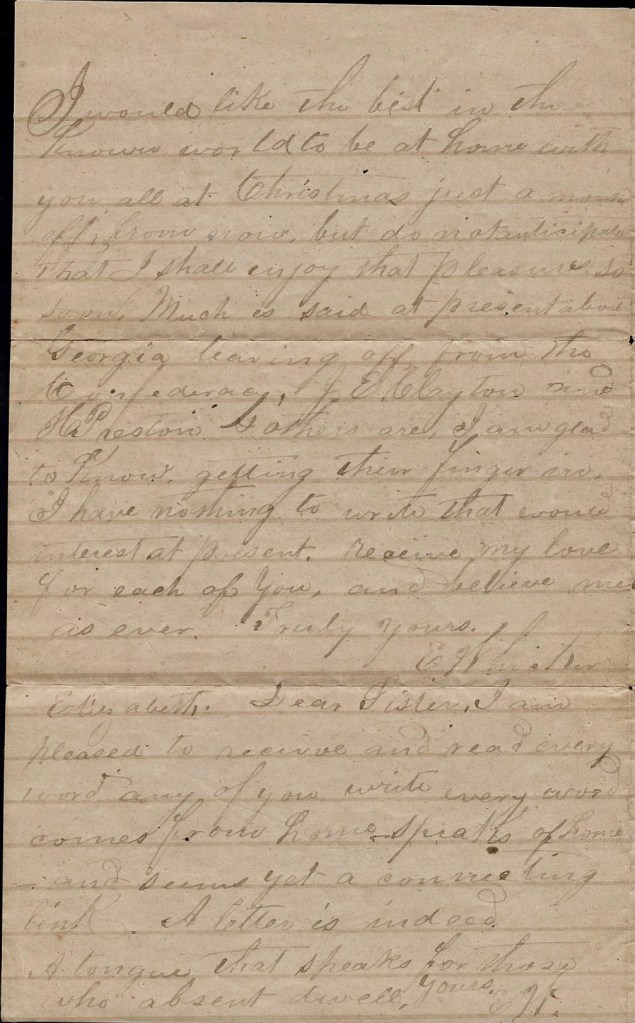 I would like the best in the
known world to be at home with
you all at Christmas just a month
off, from now, but do not anticipate
that I shall enjoy that pleasure so
soon. Much is said at present about
Georgia leaving off from the
Confederacy. J. E. Clayton and
H Preston & others are, I am glad
to know, getting their finger in,
I have nothing to write that would
interest at present. Receive my love
for each of you, and believe me
as ever. Truly yours.
E
Elizabeth. Dear Sister, I am
pleased to receive and read every
word any of you write every word
comes from home speaks of home
and seems yet a connecting
link. A letter is indeed
A tongue that speaks for those
who absent dwell, Yours,